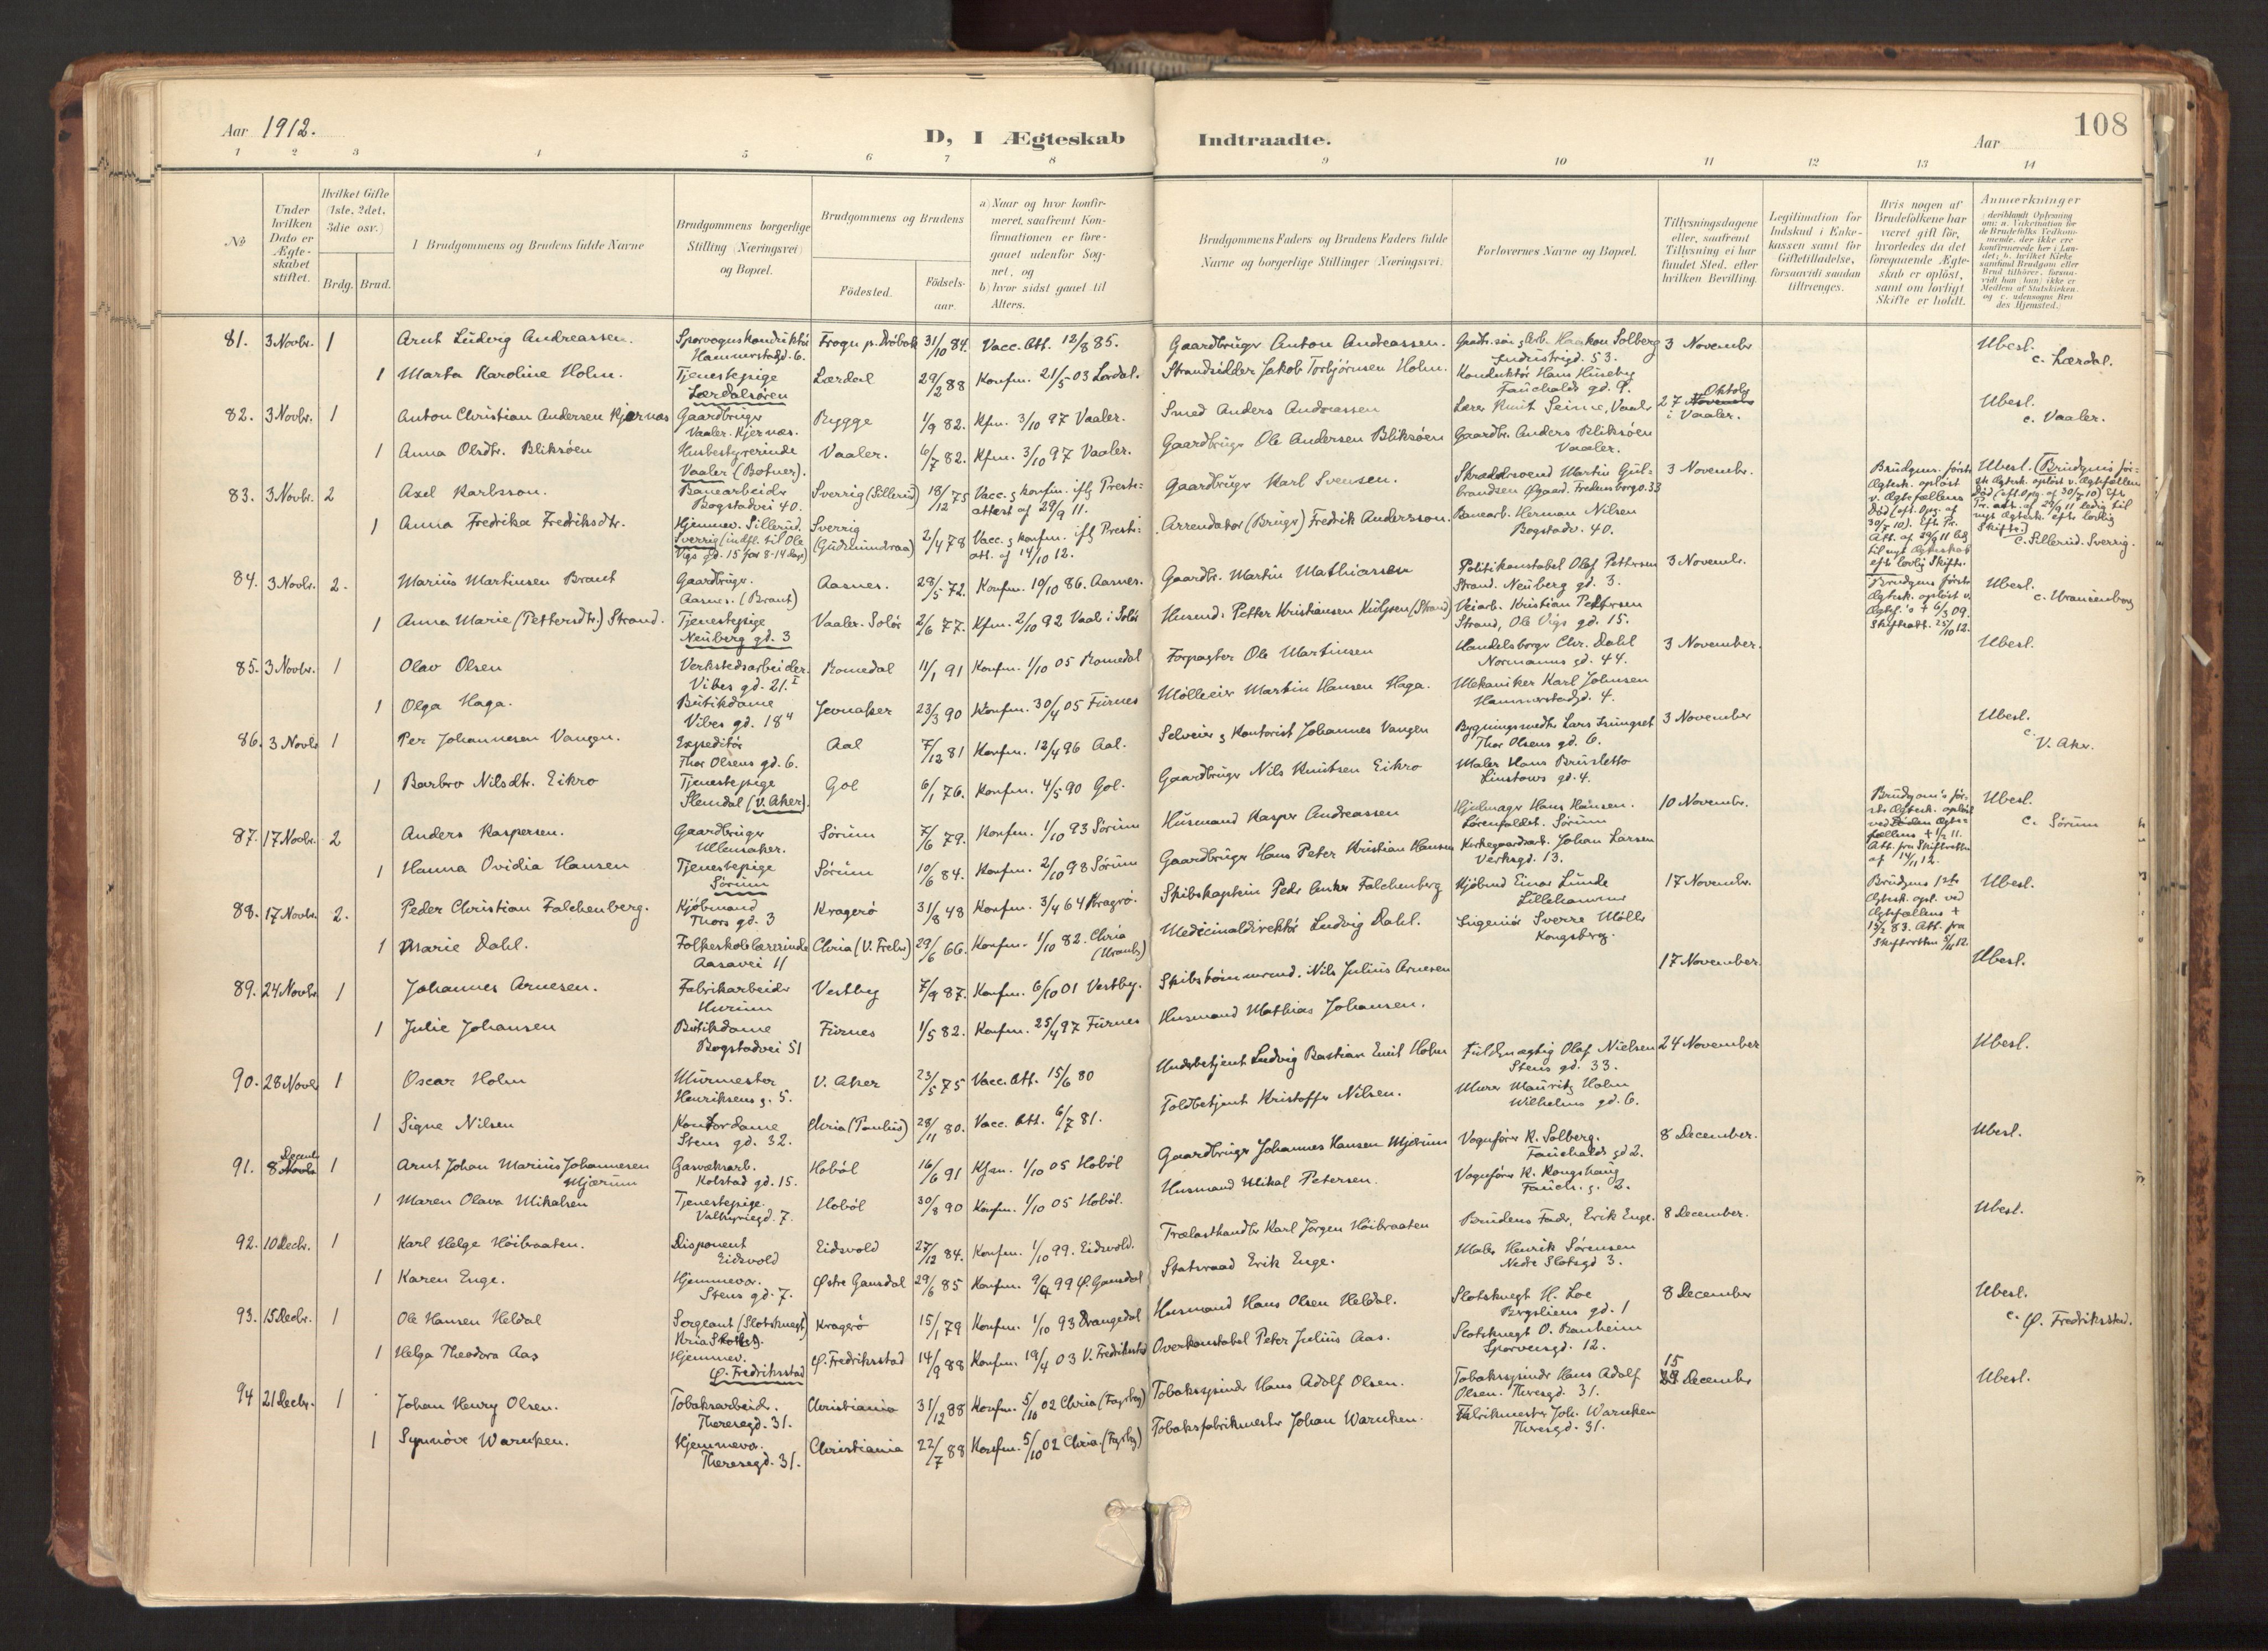 Aar 1912.
D, I Ægteskab Indtraadte.
Aar
108
1 2 3 4 5 6 7 8 9 10 11 12 13 14
№
Under hvilken Dato er Ægteskabet stiftet.
Hvilket Gifte (1ste, 2det, 3die osv.)
Brdg. Brud.
Brudgommens og Brudens fulde Navne
Brudgommens borgerlige Stilling (Næringsvei) og Bopæl.
Brudgommens og Brudens
Fødested. Fødselsaar.
a) Naar og hvor konfirmeret, saafremt Konfirmationen er foregaaet udenfor Sognet, og
b) hvor sidst gaaet til Alters.
Brudgommens Faders og Brudens Faders fulde Navne og borgerlige Stillinger (Næringsvei).
Forlovernes Navne og Bopæl.
Tillysningsdagene eller, saafremt Tillysning ei har fundet Sted, efter hvilken Bevilling.
Legitimation for Indskud i Enkekassen samt for Giftetilladelse, forsaavidt saadan tiltrænges.
Hvis nogen af Brudefolkene har været gift før, hvorledes da det foregaaende Ægteskab er opløst, samt om lovligt Skifte er holdt.
Anmærkninger
81. 3 Novbr. 1 Arnt Ludvig Andreassen. Sporvognskonduktør Hammerstadgd. 6. Frogn p. Drøbak 31/10 84. Vacc. Att. 12/8 85. Gaardbruger Anton Andreassen. Haakon Solberg Industrigd. 53. 3 November Ubesl.
c. Lærdal.
1 Marta Karoline Holm. Tjenestepige Lærdalsøren Lærdal 29/2 88 Konfm. 21/5 03 Lærdal. Strandsidder Jakob Torbjørnsen Holm. Konduktør Hans Huseby Fauchalds gd. 9.
82. 3 Novbr. 1 Anton Christian Andersen Kjernæs Gaardbruger Vaaler. Kjernæs. Rygge 1/9 82. Kfm. 3/10 97 Vaaler. Smed Anders Andreassen Lærer Knut Seime, Vaaler 27 Oktober i Vaaler. Ubesl.
c. Vaaler.
1 Anna Olsdtr. Bliksøen Husbestyrerinde Vaaler (Botner). Vaaler. 6/7 82. Kfm. 3/10 97 Vaaler. Gaardbruger Ole Andersen Bliksøen Gaardbr. Anders Bliksøen Vaaler.
83. 3 Novbr. 2 Axel Karlsson. Banearbeider Bogstadvei 40. Sverrig (Sillerud) 18/12 75 Vacc. & konfm. ifl. Presteattest af 29/9 11. Gaardbruger Karl Svensen. Skræddersvend Martin Gulbrandsen Øgaard. Fredensborgv. 33 3 Novembr. Brudgoms. første Ægtesk. opløst v. Ægtefællens Død (eft. Opg. af 30/7 10). Eftr. Pr. Att. af 29/9 11 ledig til nyt Ægteskab efter lovlig Skifte. Ubesl. (Brudgoms første Ægtesk. opløst v. Ægtefællens Død (eft. Opg. af 30/7 10) Eftr. Pr. att. af 29/9 11 ledig til nyt Ægtesk. eftr. lovlig Skifte.)
c. Sillerud. Sverrig.
1 Anna Fredrika Fredriksdtr. Hjemmev. Sillerud. Sverrig (indfl. til Ole Vigs gd. 15 for 8-14 dage) Sverrig (Gudmundraa) 2/4 78 Vacc. & konfm. ifl. Presteatt. af 14/10 12. Arrendator (Bruger) Fredrik Andersson. Banearb. Herman Nilsen Bogstadv. 40.
84. 3 Novbr. 2. Marius Martinsen Braut Gaardbruger. Aasnes. (Braut) Aasnes. 28/5 72. Konfm. 19/10 86. Aasnes. Gaardbr. Martin Mathiassen Politikonstabel Olaf Pettersen Strand. Neuberg gd. 3. 3 Novembr. Brudgoms første Ægtesk. opløst v. Ægtef.'s + 6/3 09. Skifteatt. 25/10 12. Ubesl.
c. Uranienborg
1 Anna Marie (Pettersdtr.) Strand. Tjenestepige Neuberg gd. 3 Vaaler. Solør 2/6 77. Kfm. 2/10 92 Vaaler i Solør Husmd. Petter Kristiansen (Strand) Veiarb. Kristian Pettersen Strand, Ole Vigs gd. 15.
85. 3 Novbr. 1 Olav Olsen Verkstedsarbeider. Vibes gd. 21. I Romedal 11/1 91 Konfm. 1/10 05 Romedal Forpagter Ole Martinsen Handelsborger Chr. Dahl Normanns gd. 44. 3 November. Ubesl.
1 Olga Haga. Butikdame Vibes gd. 18 4 Jevnaker 23/3 90 Konfm. 30/4 05 Furnes Mølleeier Martin Hansen Haga. Mekaniker Karl Johnsen Hammerstadgd. 4.
86. 3 Novbr. 1 Per Johannesen Vangen. Expeditør Thor Olsens gd. 6. Aal 7/12 81 Konfm. 12/4 96 Aal. Selveier & Kontorist Johannes Vangen Bygningsmedhr. Lars Thor Olsens gd. 6. 3 November Ubesl.
c. V. Aker.
1 Barbro Nilsdtr. Eikro Tjenestepige Slemdal (V. Aker). Gol 6/1 76. Konfm. 4/5 90 Gol. Gaardbruger Nils Knutsen Eikro Maler Hans Brusletto Linstows gd. 4.
87. 17 Novbr. 2 Anders Kaspersen. Gaardbruger Ullensaker. Sørum 7/6 79. Konfm. 1/10 93 Sørum Husmand Kasper Andreassen Hjulmager Hans Hansen. Lørenfaldet. Sørum 10 Novembr. Brudgom's første Ægtesk. opløst ved Ægtefællens + 1/2 11. Att. fra Skifteretten af 14/11 12. Ubesl.
c. Sørum
1 Hanna Ovidia Hansen Tjenestepige Sørum Sørum 10/6 84. Konfm. 2/10 98 Sørum Gaardbruger Hans Peter Kristian Hansen Kirkegaardsarb. Johan Larsen Verksgd. 13.
88. 17 Novbr. 2. Peder Christian Falchenberg. Kjøbmand Thors gd. 3 Kragerø 31/8 48 Konfm. 3/4 64 Kragrø. Skibskaptein Peder Anker Falchenberg Kjøbmd Einar Lunde Lillehammer 17 Novembr. Brudgoms 1ste Ægtesk. opl. ved Ægtefællens + 15/2 83. Att. fra Skifteretten 5/11 12. Ubesl.
1 Marie Dahl. Folkeskolelærerinde Aasavei 11 Chria (V. Frels) 29/6 66. Konfm. 1/10 82. Chria (Uranb.) Medicinaldirektør Ludvig Dahl. Ingeniør Sverre Møller Kongsberg.
89. 24 Novbr. 1 Johannes Arnesen. Fabrikarbeider Hurum Vestby 7/9 87. Konfm. 6/10 01 Vestby. Skibstømmermd. Nils Julius Arnesen 17 November. Ubesl.
1 Julie Johansen Butikdame Bogstadvei 51 Furnes 1/5 82. Konfm. 25/4 97 Furnes Husmand Mathias Johansen.
90. 28 Novbr 1 Oscar Holm Murmester Henriksens g. 5. V. Aker 23/5 75 Vacc. Att. 15/6 80 Underbetjent Ludvig Bastian Emil Holm Fuldmægtig Olaf Nielsen Stens gd. 33. 24 November Ubesl.
1 Signe Nilsen Kontordame Stens gd. 32. Chria (Paulus) 28/11 80. Vacc. Att. 6/7 81. Toldbetjent Kristoffer Nilsen. Murer Mauritz Holm Wilhelms gd. 6.
91. 8 Decembr 1 Arnt Johan Marius Johannesen Mjærum Gasverksarb. Kolstad gd. 15. Hobøl 16/6 91 Kfm. 1/10 05 Hobøl Gaardbruger Johannes Hansen Mjærum Vognfører K. Solberg. Fauchalds gd 2. 8 December. Ubesl.
1 Maren Olava Mikalsen Tjenestepige. Valkyriegd. 7. Hobøl 30/8 90 Konfm. 1/10 05 Hobøl. Husmand Mikal Petersen. Vognfører K. Kongshaug Fauch. g. 2.
92. 10 Decbr. 1 Karl Helge Høibraaten. Disponent Eidsvold Eidsvold 27/12 84. Konfm. 1/10 99. Eidsvold. Trælasthandler Karl Jørgen Høibraaten Brudens Fader, Erik Enge. 8 December. Ubesl.
1 Karen Enge. Hjemmevr. Stens gd. 7. Østre Gausdal 29/6 85 Konfm. 9/4 99 Ø. Gausdal Statsraad Erik Enge. Maler Henrik Sørensen Nedre Slotsgd 3.
93. 15 Decbr. 1 Ole Hansen Heldal Sergeant (Slotsknegt) Kria Slottet. Kragerø 15/1 79 Konfm. 1/10 93 Drangedal Husmand Hans Olsen Heldal. Slotsknegt H. Loe Bergsliens gd. 1 8 December Ubesl.
c. Ø. Fredriksstad.
1 Helga Theodora Aas Hjemmev. Ø. Fredriksstad Ø. Fredriksstad 14/9 88 Konfm. 19/4 03 V. Fredriksstad Overkonstabel Peter Julius Aas. Slotsknegt O. Ranheim Sporveisgd. 12.
94 21 Decbr. 1 Johan Henry Olsen. Tobaksarbeid. Theresegd. 31. Christiania 31/12 88 Konfm. 5/10 02 Chria (Fagerbg) Tobaksspinder Hans Adolf Olsen. Tobaksspinder Hans Adolf Olsen. Theresgd. 31. 15 December Ubesl.
1 Synnøve Warnken. Hjemmevr. Theresegd. 31. Christiania 22/7 88 Konfm. 5/10 02 Chria. (Fagrbg) Tobaksfabrikmester Johan Warnken. Fabrikmester Joh. Warnken Theresgd. 31.